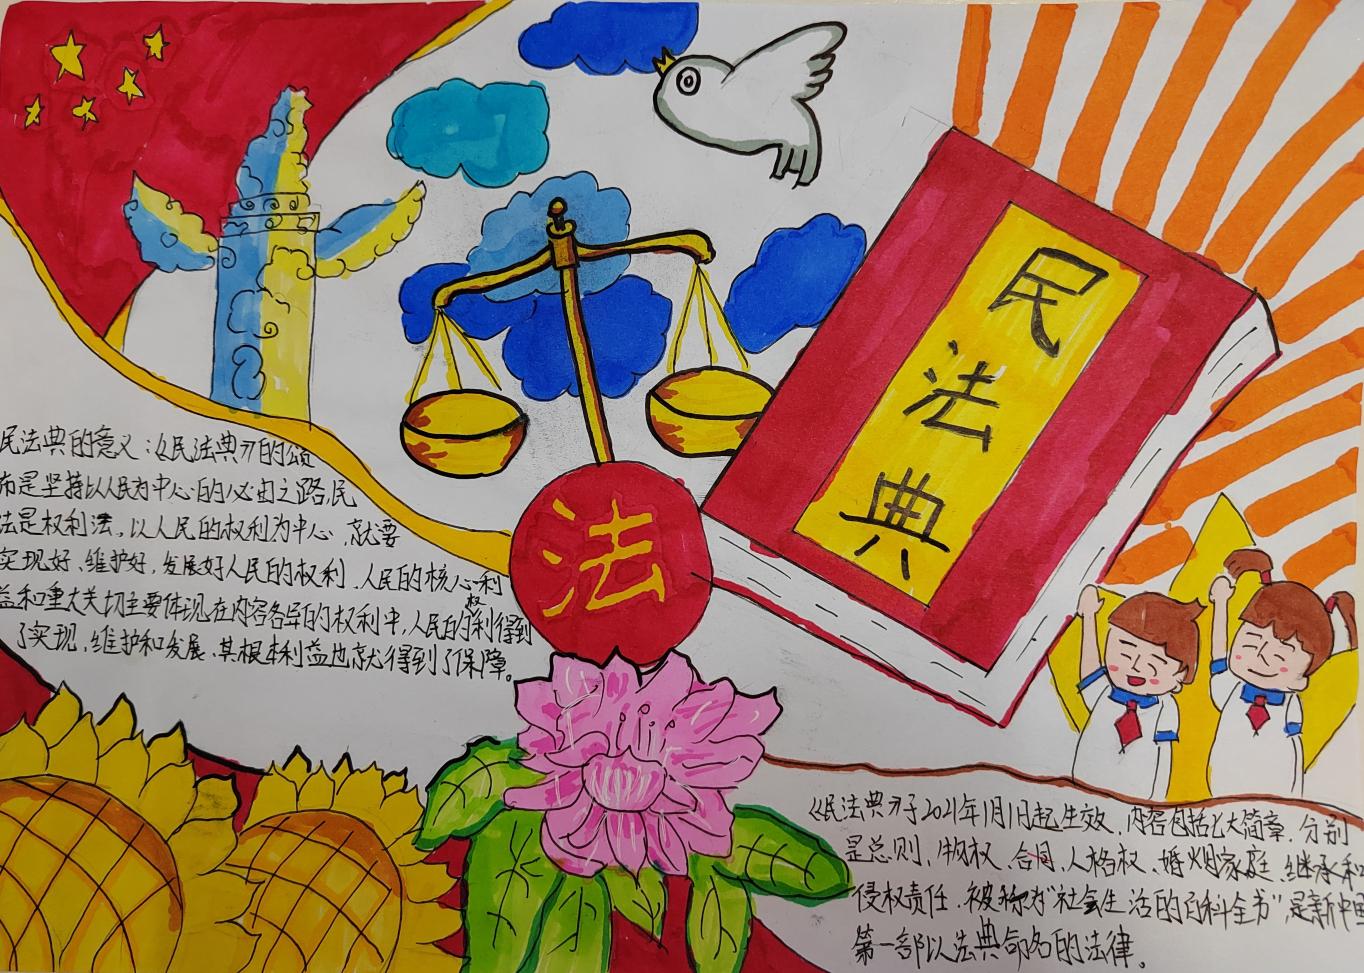 民法典
法
民法典的意义：《民法典》的颁
布是坚持以人民为中心的必由之路，民
法是权利法，以人民的权利为中心，就要
实现好、维护好，发展好人民的权利，人民的核心利
益和重大关切主要体现在内容各异的权利中，人民的权利得到
了实现、维护和发展、其根本利益也就得到了保障。
《民法典》于2021年1月1日起生效，内容包括七大简章，分别
是总则、物权、合同、人格权、婚姻家庭、继承和
侵权责任，被称为"社会生活的百科全书"，是新中国
第一部以法典命名的法律。